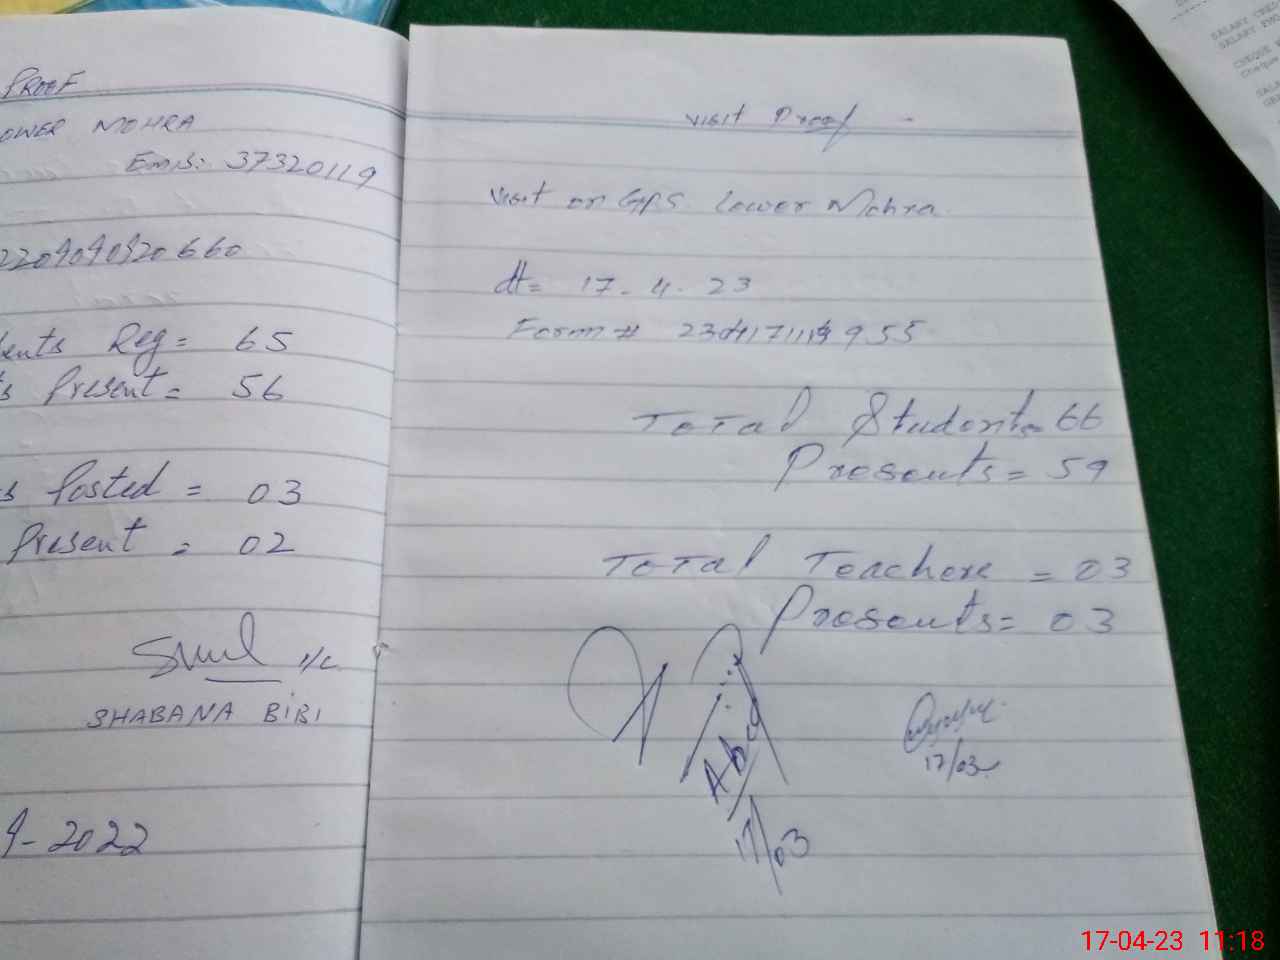 PROOF
OWER MOHRA
Emis: 37320119
660
ents Reg = 65
ts Present = 56
s Posted = 03
Present = 02
SHABANA BIBI
9-2022
visit Proof
visit on GPS Lower Mohra.
dt= 17-4-23
Form #
Total Students=66
Presents=59
Total Teachers =03
Presents=03
Abid
17/03
17/03
SALARY
SALARY
CHEQUE
Cheque
17-04-23 11:18